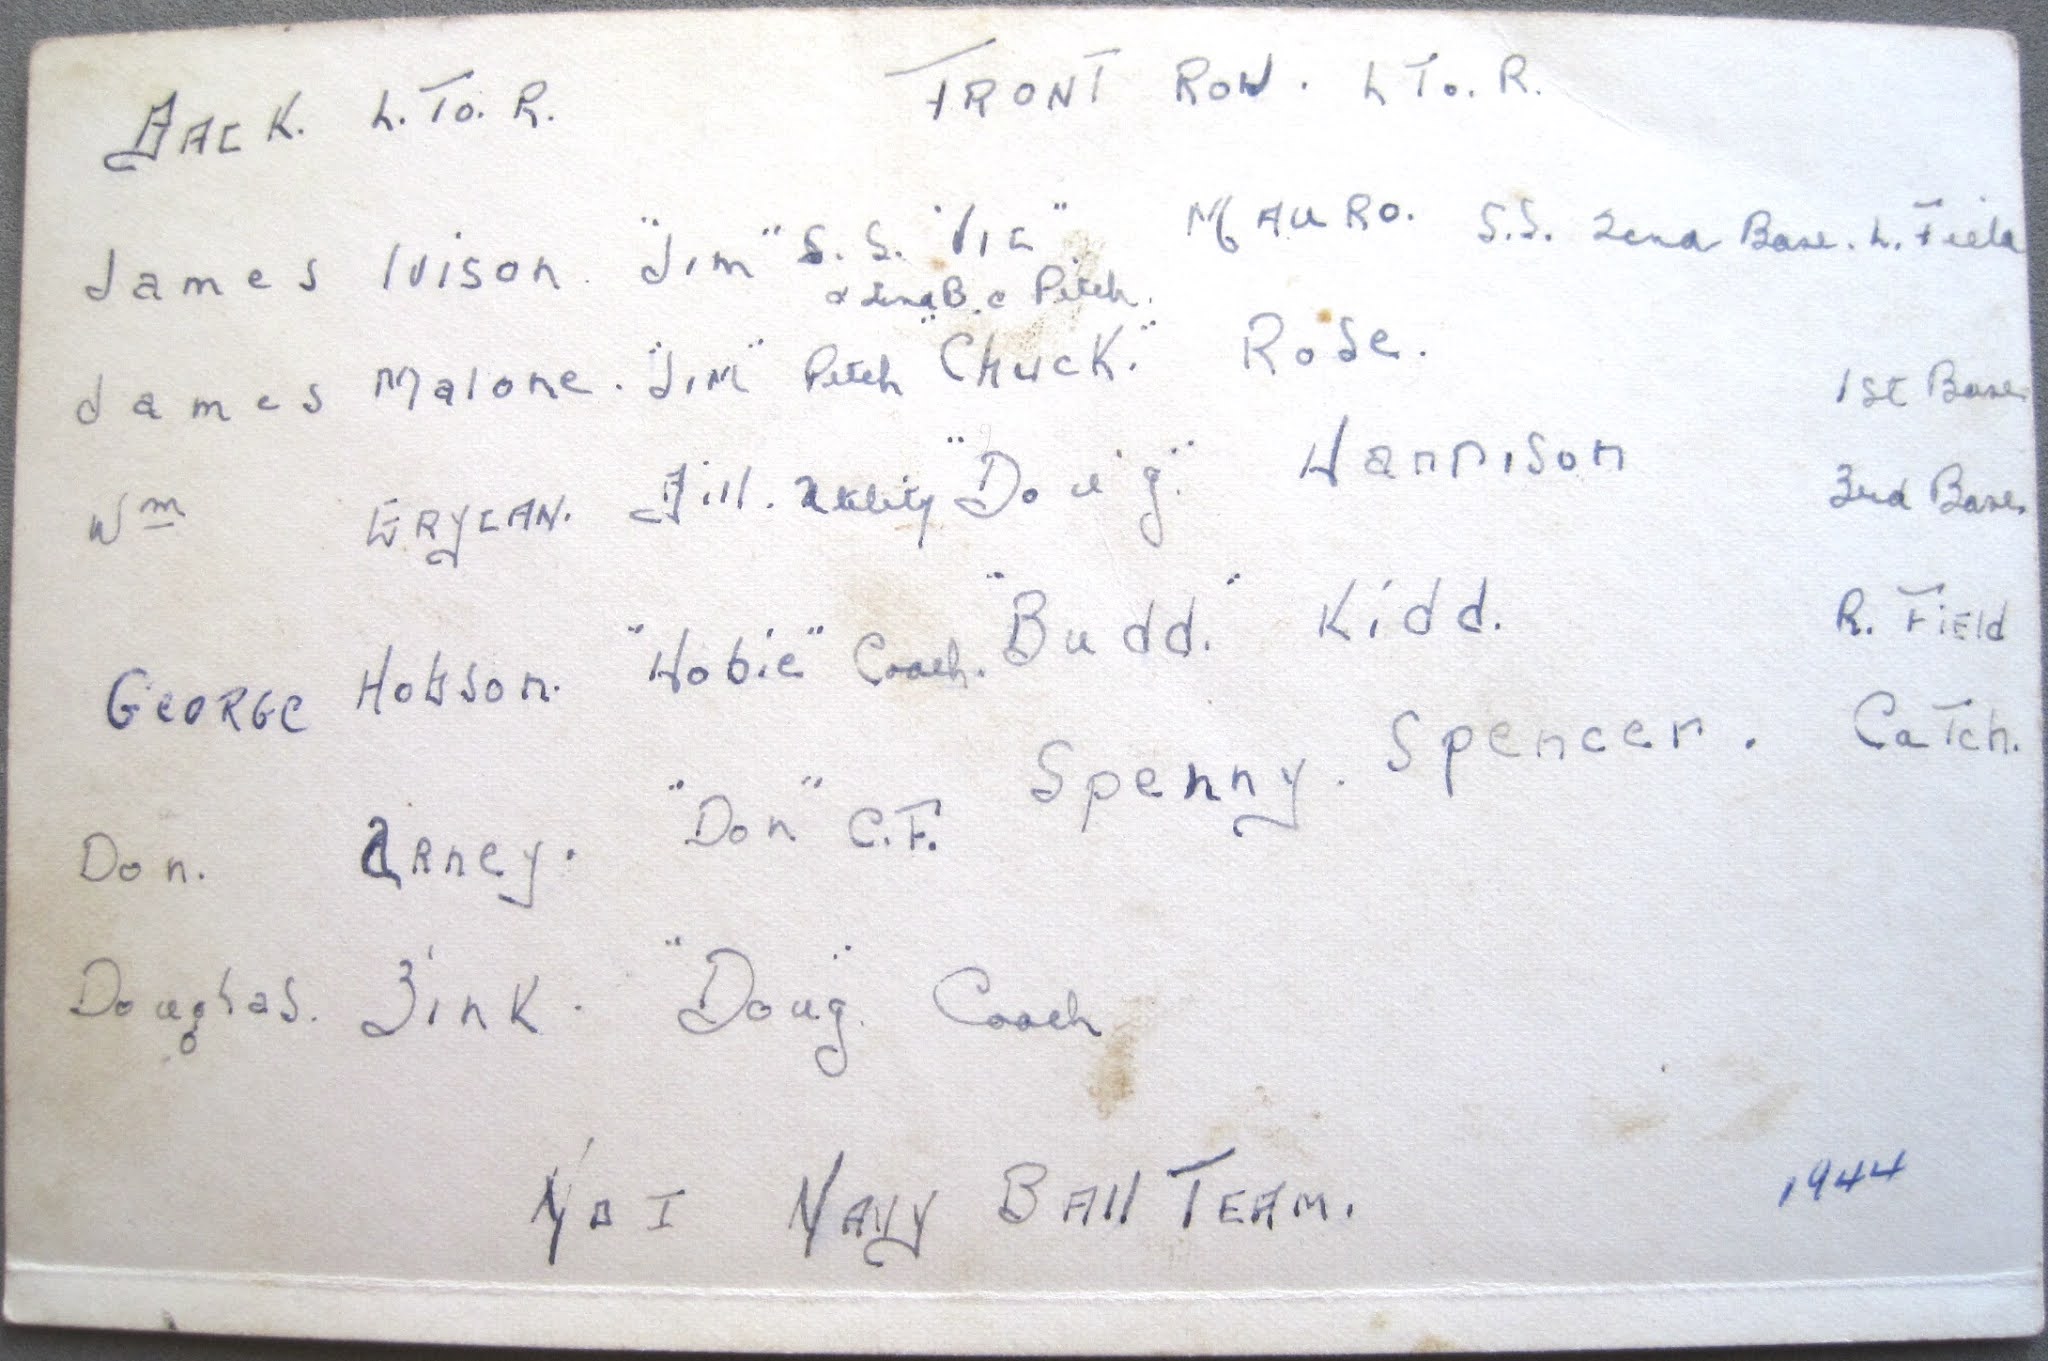 BACK. L. To. R. FRONT ROW. L To. R.
James Ivison. "Jim" S.S. "Vic" MAURO. S.S. 2nd Base. L. Field
& 2nd B. & Pitch.
James Malone. "JIM" Pitch "Chuck." Rose. 1st Base.
Wm ERYCAN. Bill. utility "Doug" Harrison 3rd Base.
GEORGE Hobson. "Hobie" Coach. "Budd." Kidd. R. FIELD
Don. Arney. "Don" C.F. Spenny. Spencer. Catch.
Douglas. Zink. "Doug" Coach
No I NAVY BAll TEAM. 1944